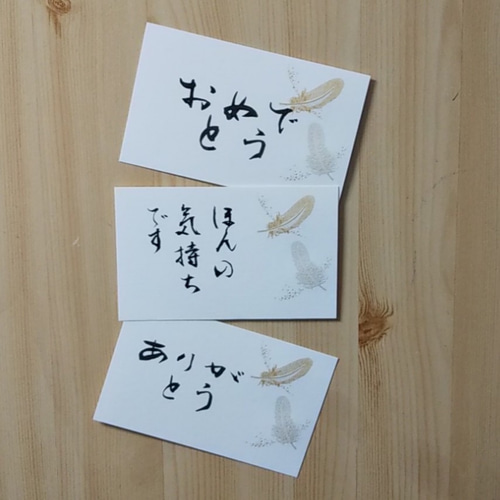 おめで
とう
ほんの
気持ち
です
ありが
とう